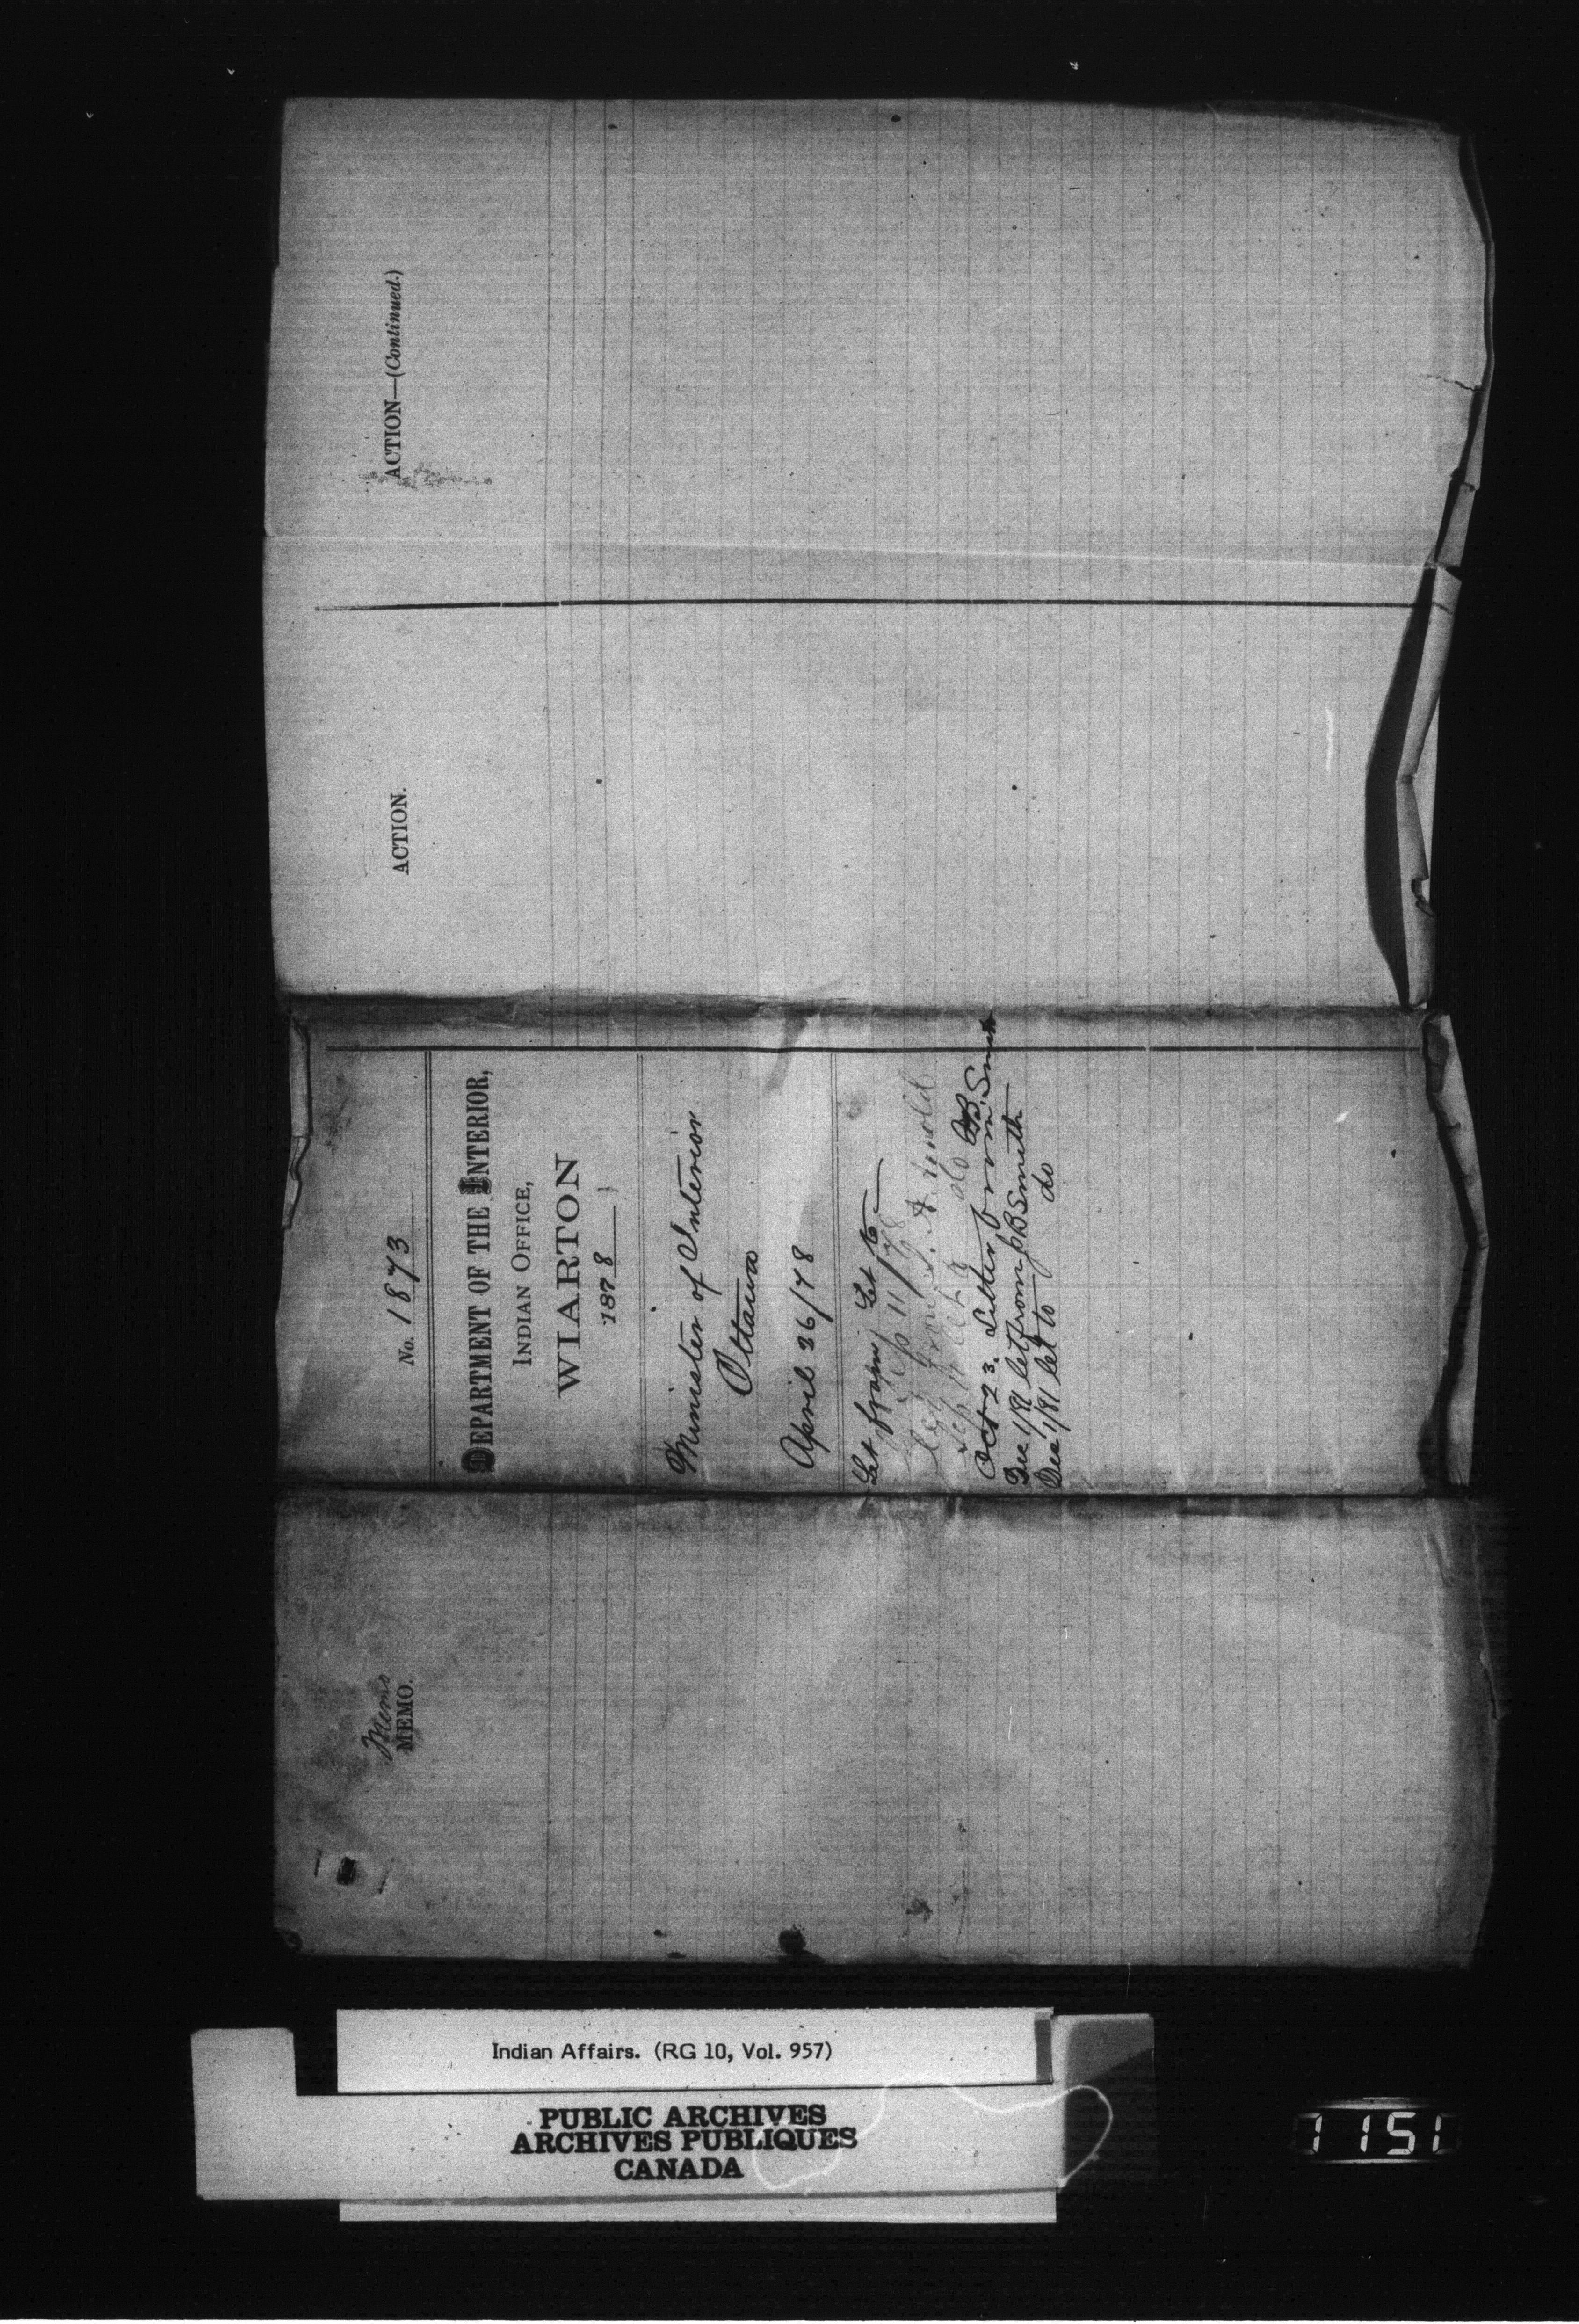 ACTION—(Continued.)
ACTION.
No. 1873
DEPARTMENT OF THE INTERIOR,
INDIAN OFFICE,
WIARTON
1878
Minister of Interior
Ottawa
April 26/78
Let from Let to
Sep 11/78
Let from J. Arnold
Sep Let do
Oct 23. Letter from B. Smith
Dec 1/81 let from B Smith
Dec 1/81 let to do
Memo
MEMO.
Indian Affairs. (RG 10, Vol. 957)
PUBLIC ARCHIVES
ARCHIVES PUBLIQUES
CANADA
1151